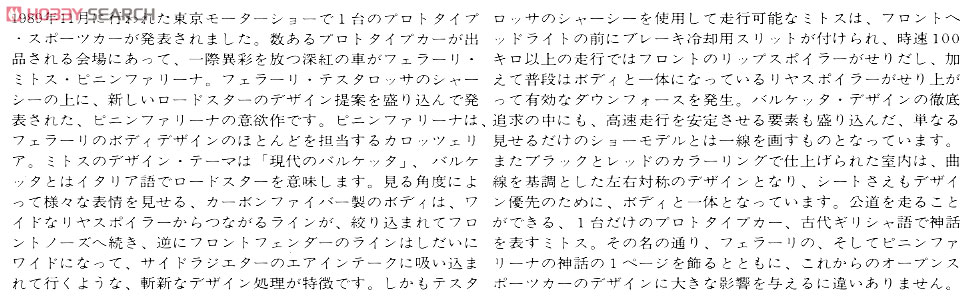 HOBBY SEARCH
1989年11月に行われた東京モーターショーで１台のプロトタイプ
・スポーツカーが発表されました。数あるプロトタイプカーが出
品される会場にあって、一際異彩を放つ深紅の車がフェラーリ・
ミトス・ピニンファリーナ。フェラーリ・テスタロッサのシャー
シーの上に、新しいロードスターのデザイン提案を盛り込んで発
表された、ピニンファリーナの意欲作です。ピニンファリーナは、
フェラーリのボディデザインのほとんどを担当するカロッツェリ
ア。ミトスのデザイン・テーマは「現代のバルケッタ」、バルケ
ッタとはイタリア語でロードスターを意味します。見る角度によ
って様々な表情を見せる、カーボンファイバー製のボディは、ワ
イドなリヤスポイラーからつながるラインが、絞り込まれてフロ
ントノーズへ続き、逆にフロントフェンダーのラインはしだいに
ワイドになって、サイドラジエターのエアインテークに吸い込ま
れて行くような、斬新なデザイン処理が特徴です。しかもテスタ
ロッサのシャーシーを使用して走行可能なミトスは、フロントヘ
ッドライトの前にブレーキ冷却用スリットが付けられ、時速100
キロ以上の走行ではフロントのリップスポイラーがせりだし、加
えて普段はボディと一体になっているリヤスポイラーがせり上が
って有効なダウンフォースを発生。バルケッタ・デザインの徹底
追求の中にも、高速走行を安定させる要素も盛り込んだ、単なる
見せるだけのショーモデルとは一線を画すものとなっています。
またブラックとレッドのカラーリングで仕上げられた室内は、曲
線を基調とした左右対称のデザインとなり、シートさえもデザイ
ン優先のために、ボディと一体となっています。公道を走ること
ができる、１台だけのプロトタイプカー、古代ギリシャ語で神話
を表すミトス。その名の通り、フェラーリの、そしてピニンファ
リーナの神話の１ページを飾るとともに、これからのオープンス
ポーツカーのデザインに大きな影響を与えるに違いありません。